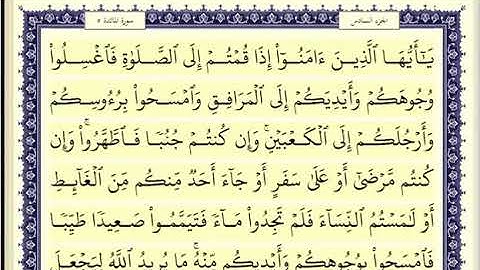 الجزء السادس سورة المائدة ٥
يَـٰٓأَيُّهَا ٱلَّذِينَ ءَامَنُوٓا۟ إِذَا قُمْتُمْ إِلَى ٱلصَّلَوٰةِ فَٱغْسِلُوا۟
وُجُوهَكُمْ وَأَيْدِيَكُمْ إِلَى ٱلْمَرَافِقِ وَٱمْسَحُوا۟ بِرُءُوسِكُمْ
وَأَرْجُلَكُمْ إِلَى ٱلْكَعْبَيْنِ ۚ وَإِن كُنتُمْ جُنُبًا فَٱطَّهَّرُوا۟ ۚ وَإِن
كُنتُم مَّرْضَىٰٓ أَوْ عَلَىٰ سَفَرٍ أَوْ جَآءَ أَحَدٌ مِّنكُم مِّنَ ٱلْغَآئِطِ
أَوْ لَـٰمَسْتُمُ ٱلنِّسَآءَ فَلَمْ تَجِدُوا۟ مَآءً فَتَيَمَّمُوا۟ صَعِيدًا طَيِّبًا
فَٱمْسَحُوا۟ بِوُجُوهِكُمْ وَأَيْدِيكُم مِّنْهُ ۚ مَا يُرِيدُ ٱللَّهُ لِيَجْعَلَ